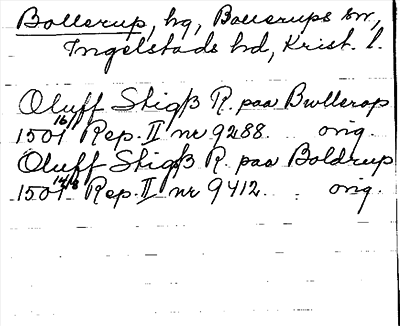 Bollerup, hg, Bollerups sn,
Ingelstads hd, Krist. l.
Oluff Stigß R. paa Bwllerop
1501 16/ Rep. II nr 9288. orig.
Oluff Stigß R. paa Boldrup
1501 Rep. II nr 9412. orig.